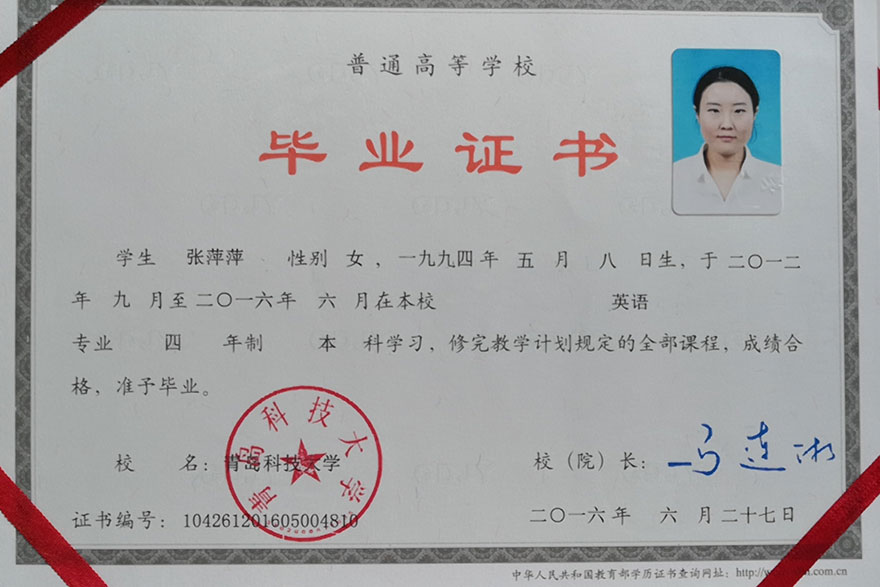 普通高等学校
毕业证书
学生 张萍萍 性别 女，一九九四年 五 月 八 日生，于二〇一二
年 九 月至二〇一六年 六 月在本校 英语
专业 四 年制 本 科学习，修完教学计划规定的全部课程，成绩合
格，准予毕业。
青岛科技大学
校 名：青岛科技大学 校（院）长：马连湘
证书编号：104261201605004810 二〇一六年 六 月二十七日
中华人民共和国教育部学历证书查询网址：http://